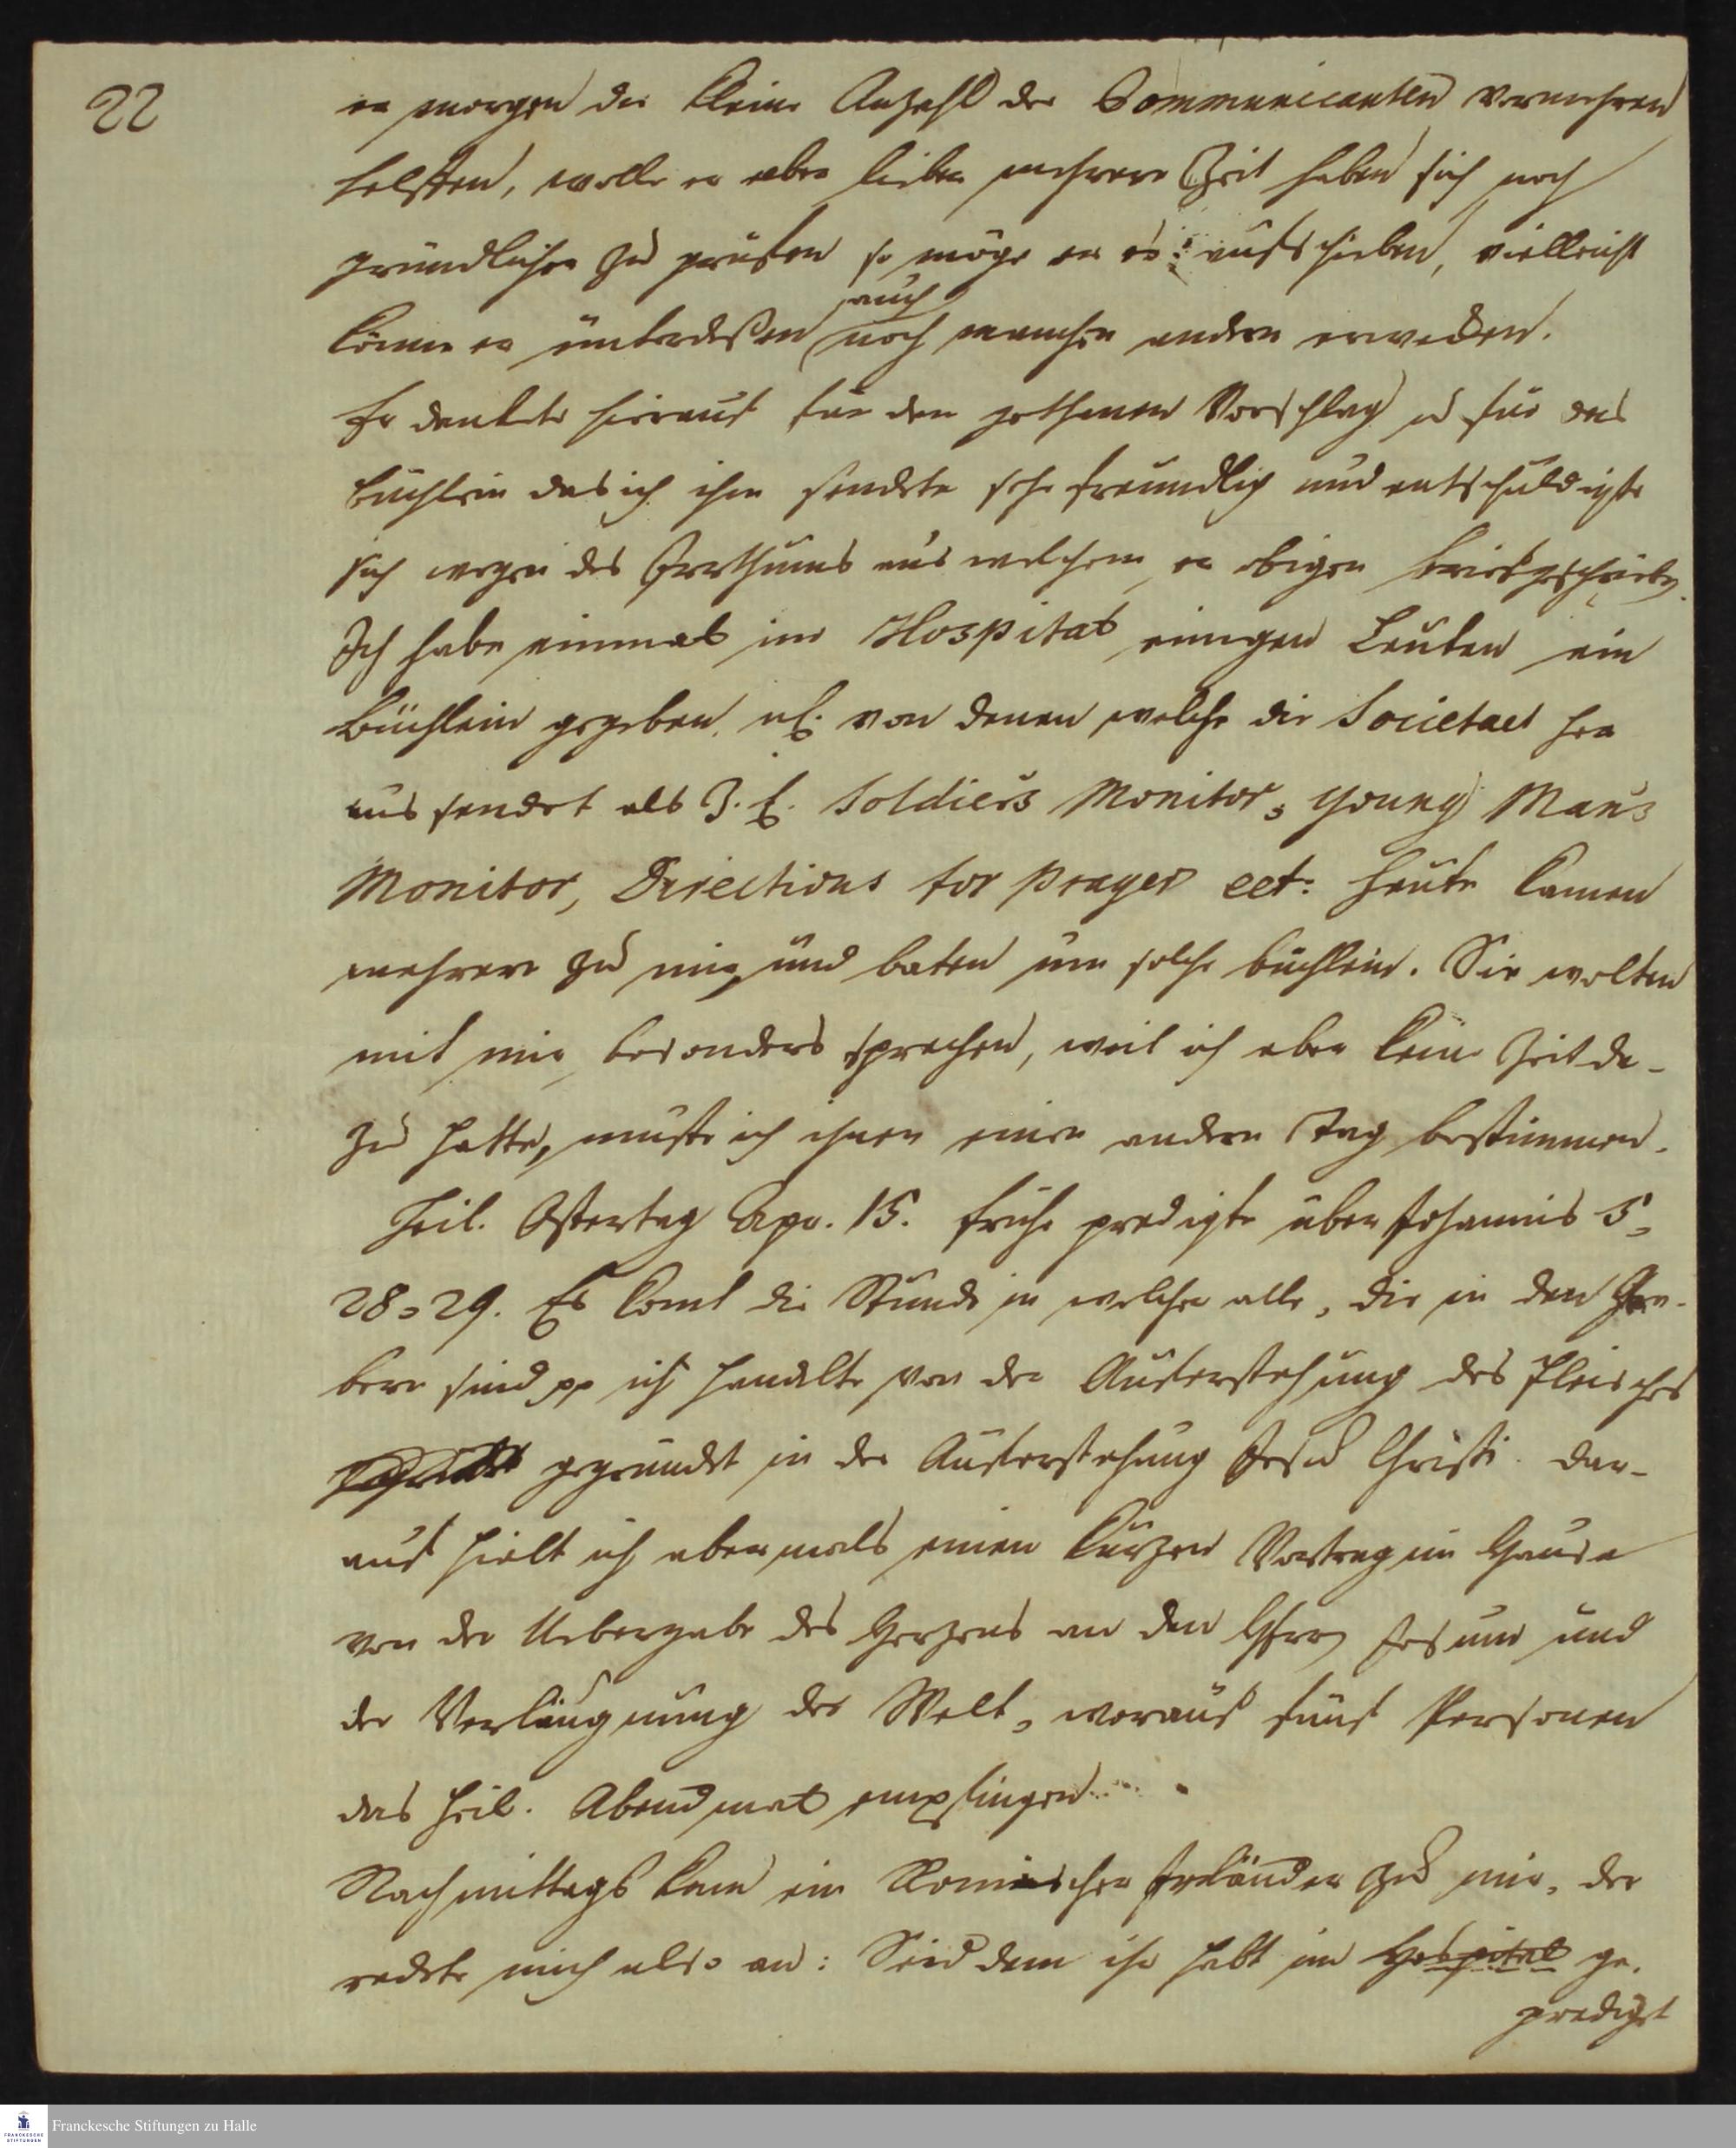 22
er morgen die kleine Anzahl der Communicanten vermehren
helffen, wolle er aber lieber mehrere Zeit haben sich noch
gründlicher zu prüfen so möge er es aufschieben, vielleicht
auch
könne er unterdeßen noch manchen andern erwecken.
Er dankte hierauf für den gethanen Vorschlag u für das
büchlein das ich ihm sendete sehr freundlich und entschuldigte
sich wegen des Irrthums aus welchem er obigen brief geschrieben.
Ich habe einmal im Hospital einigen Leuten ein
Büchlein gegeben, nl. von denen welche die Societaet her
aus sendet als Z. E. Soldiers Monitor, Young Man's
Monitor, Directions for prayer ect: heute kamen
mehrere zu mir und baten um solche büchlein. Sie wolten
mit mir besonders sprechen, weil ich aber keine Zeit da-
zu hatte, muste ich ihnen einen andern Tag bestimmen.
Heil. Ostertag Apr. 15. frühe predigte über Johannis 5,
28,29. Es komt die Stunde in welcher alle, die in den Grä-
bern sind pp ich handelte von der Auferstehung des Fleisches
gegründet in der Auferstehung Jesu Christi. Dar-
auf hielt ich abermals einen kurzen Vortrag im Hause
von der Uebergabe des Herzens an den HErrn Jesum und
der Verläugnung der Welt, worauf fünf Personen
das heil. Abendmal empfingen.
Nachmittags kam ein Romischer Irländer zu mir, der
redete mich also an: Seid dem ihr habt im Hospital ge-
predigt
Franckesche Stiftungen zu Halle
FRANCKESCHE
STIFTUNGEN